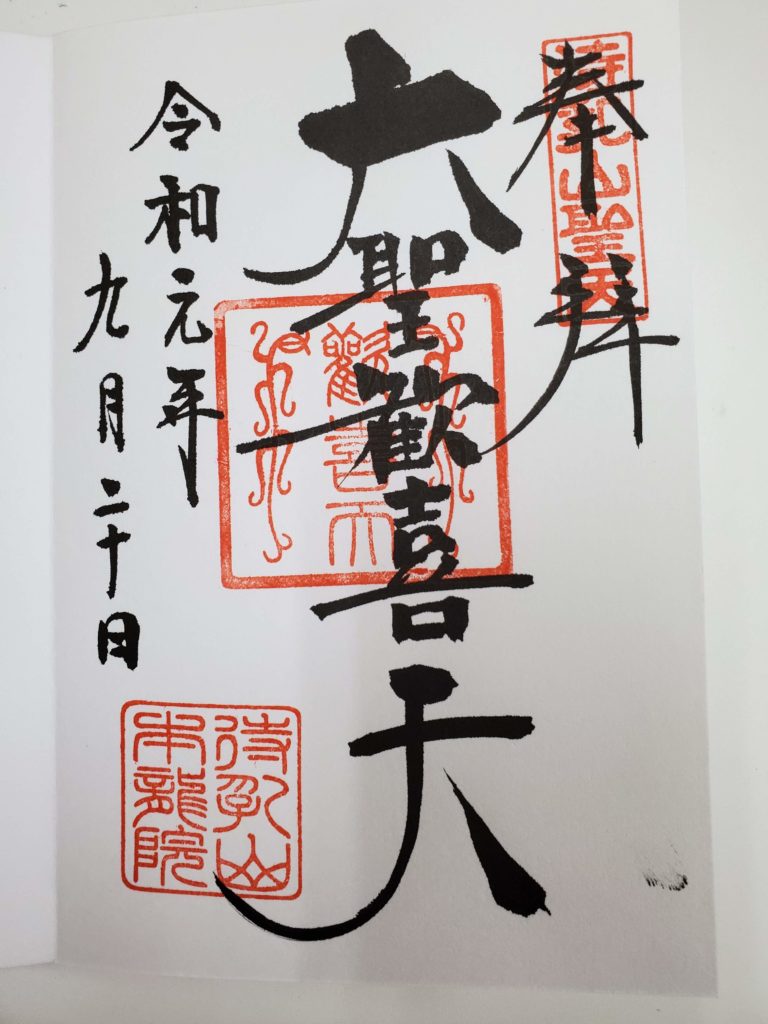 奉拝
待乳山聖天
大聖歓喜天
歡喜天
令和元年
九月二十日
待乳山
本龍院